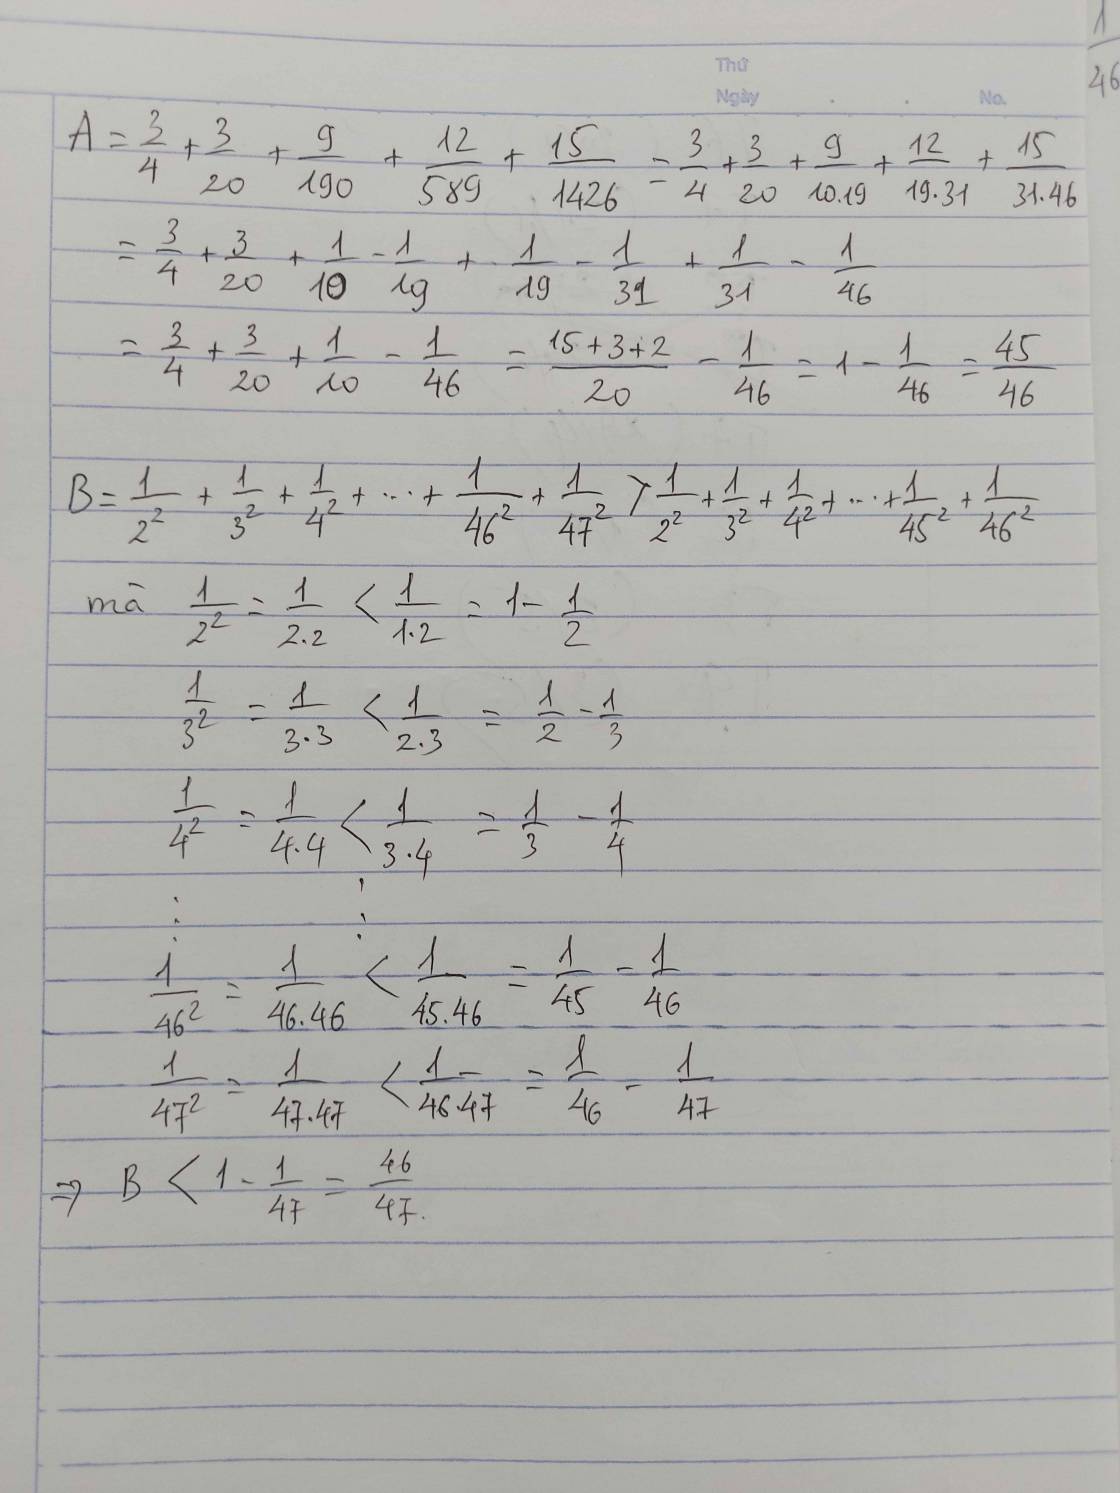 Thứ
Ngày . . No.
1/46
A = 3/4 + 3/20 + 9/190 + 12/589 + 15/1426 = 3/4 + 3/20 + 9/10.19 + 12/19.31 + 15/31.46
= 3/4 + 3/20 + 1/10 - 1/19 + 1/19 - 1/31 + 1/31 - 1/46
= 3/4 + 3/20 + 1/10 - 1/46 = 15+3+2/20 - 1/46 = 1 - 1/46 = 45/46
B = 1/2² + 1/3² + 1/4² + ... + 1/46² + 1/47² > 1/2² + 1/3² + 1/4² + ... + 1/45² + 1/46²
mà 1/2² = 1/2.2 < 1/1.2 = 1 - 1/2
1/3² = 1/3.3 < 1/2.3 = 1/2 - 1/3
1/4² = 1/4.4 < 1/3.4 = 1/3 - 1/4
⋮ ⋮
1/46² = 1/46.46 < 1/45.46 = 1/45 - 1/46
1/47² = 1/47.47 < 1/46.47 = 1/46 - 1/47
⇒ B < 1 - 1/47 = 46/47.